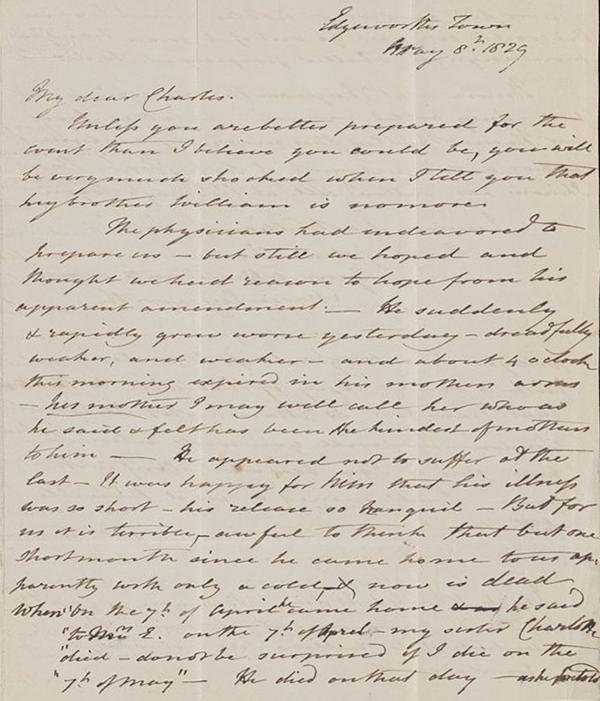 Edgeworths Town
May 8th. 1829
My dear Charles.
Unless you are better prepared for the
event than I believe you could be, you will
be very much shocked when I tell you that
my brother William is no more
The physicians had endeavored to
prepare us - but still we hoped and
thought we had reason to hope from his
apparent amendment. — He suddenly
& rapidly grew worse yesterday - dreadfully
weaker, and weaker - and about 4 o clock
this morning expired in his mothers arms
- his mother I may well call her who as
he said & felt has been the kindest of mothers
to him — He appeared not to suffer at the
last - It was happy for him that his illness
was so short - his release so tranquil - But for
us it is terrible, - awful to think that but one
short month since he came home to us ap-
parently with only a cold, & now is dead
When on the 7th of April he came home he said
"to Mrs E. on the 7th of April - my sister Charlotte
"died - do not be surprised if I die on the
"7th of May" - He died on that day - as he foretold